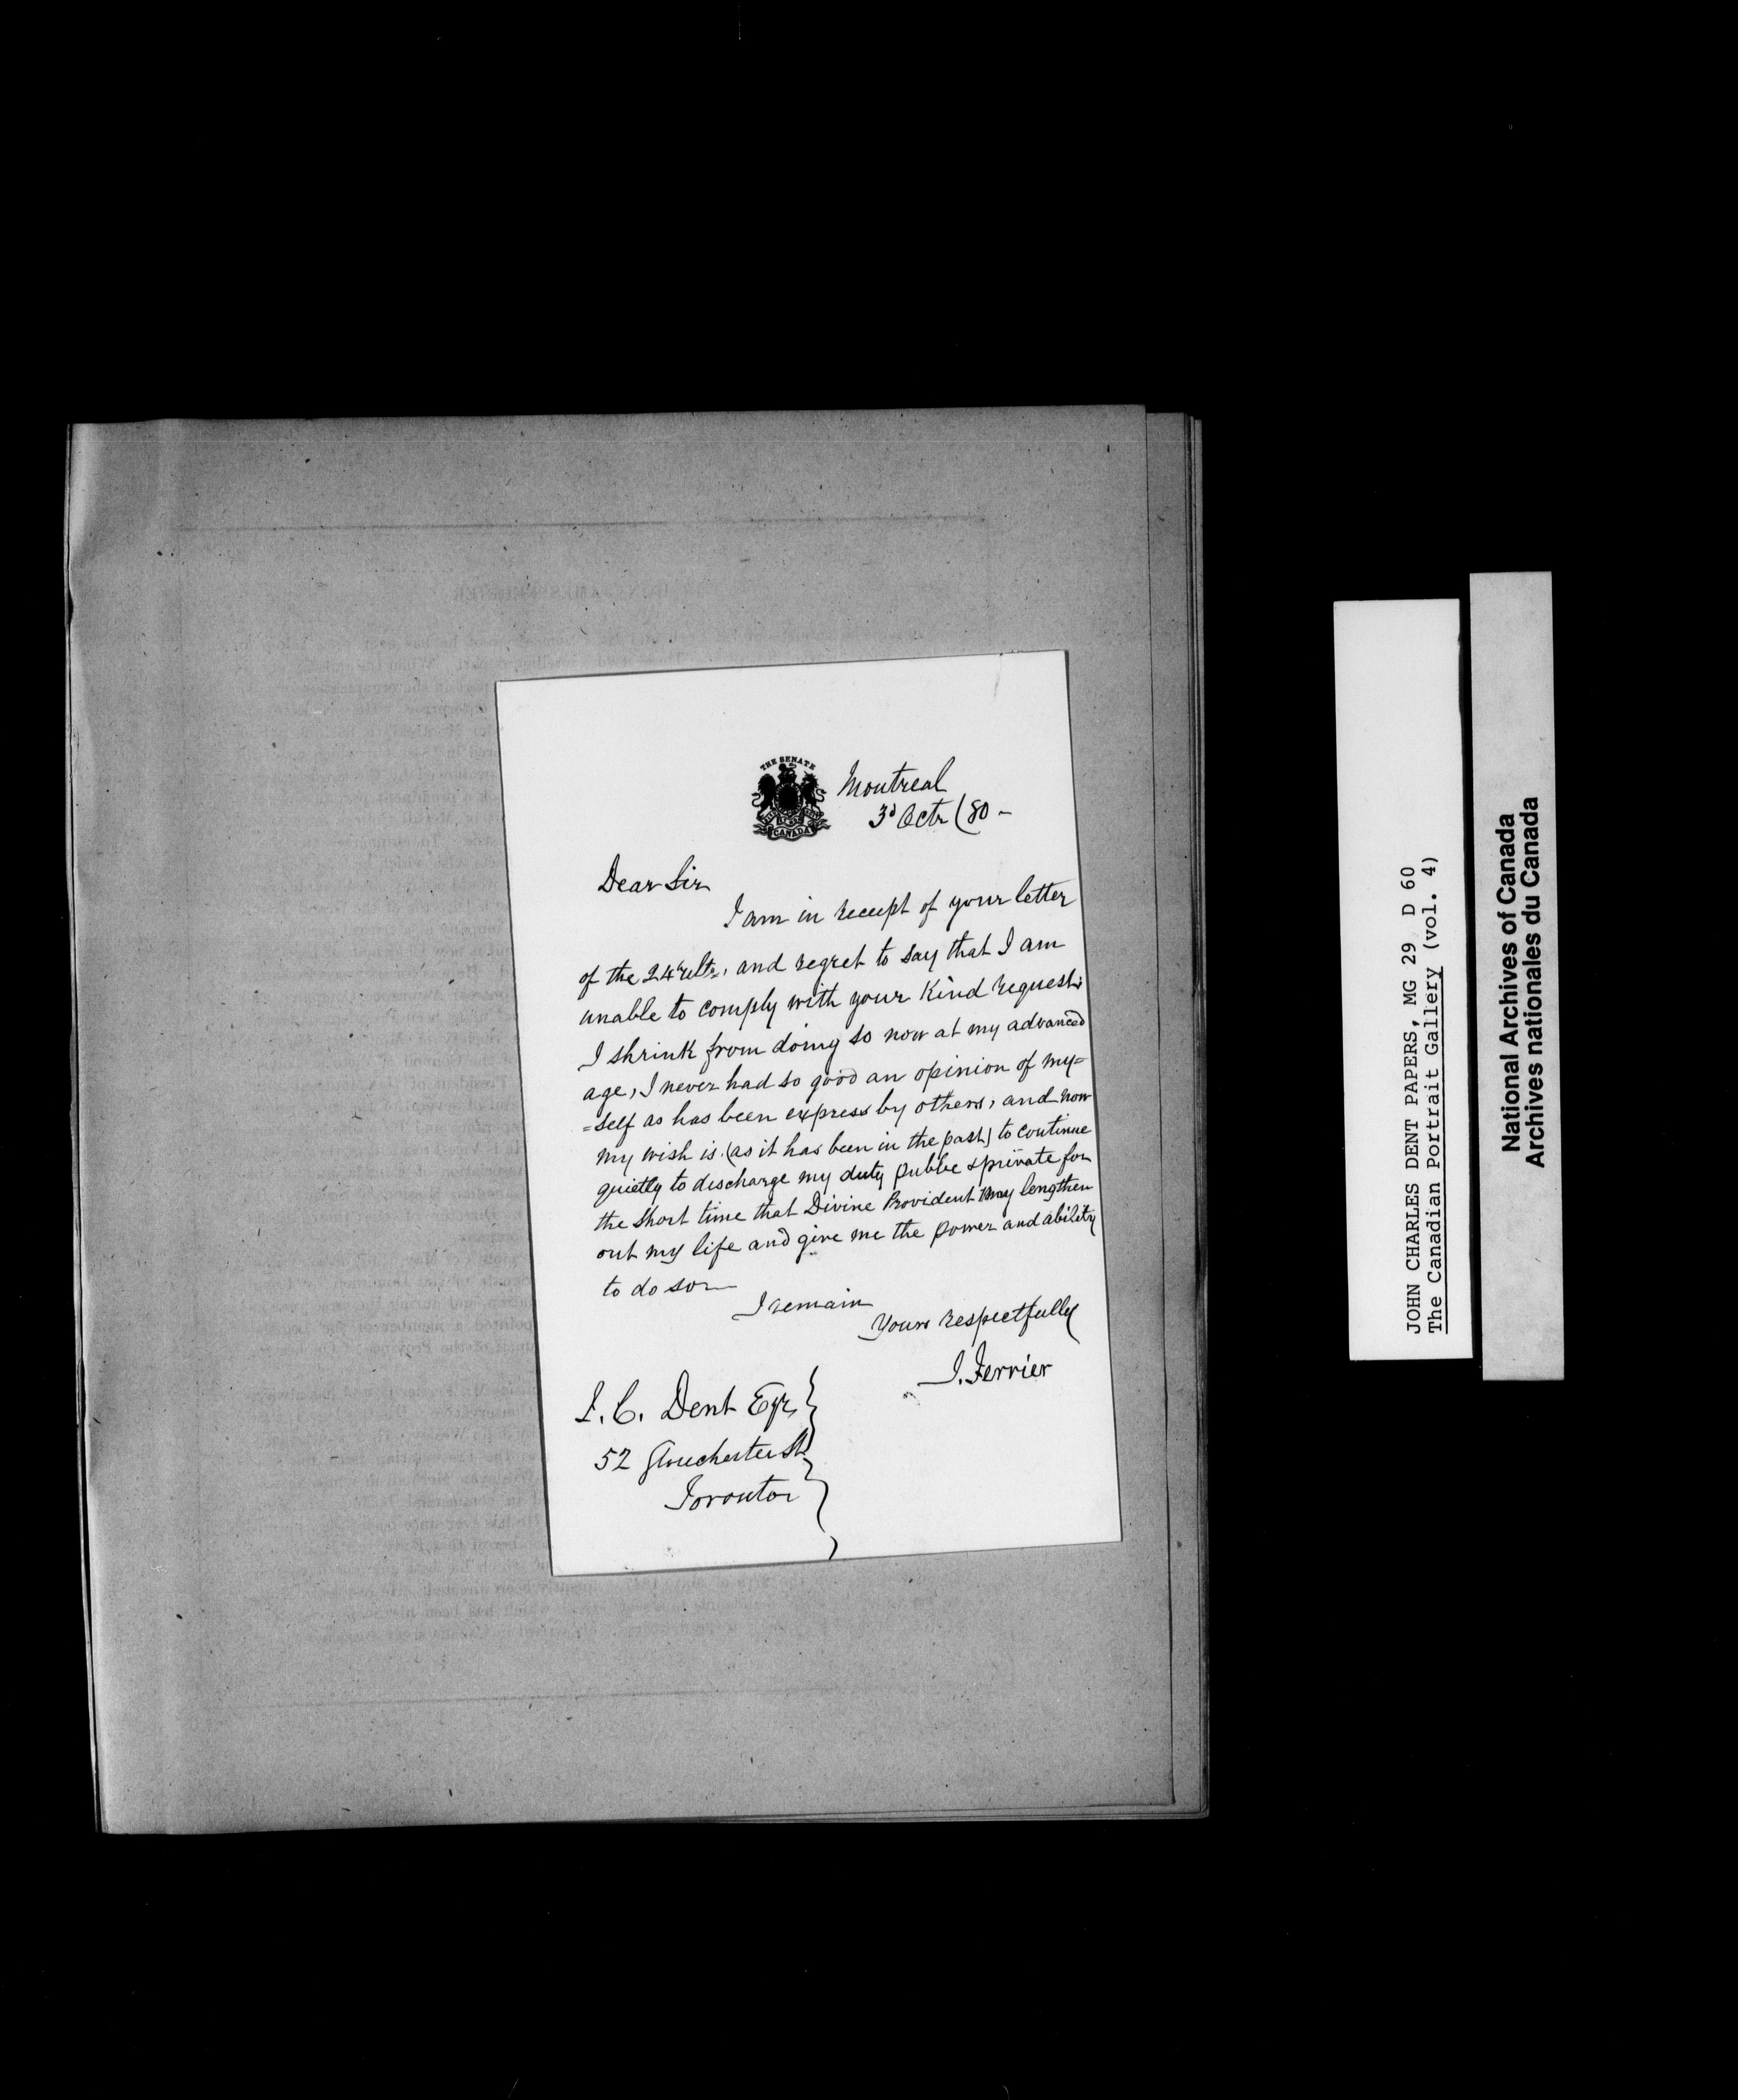 THE SENATE
CANADA
Montreal
3d Octr (80 -
Dear Sir
I am in receipt of your letter
of the 24 ulto, and regret to say that I am
unable to comply with your Kind request.
I shrink from doing so now at my advanced
age, I never had so good an opinion of my=
=self as has been express by others, and now
my wish is (as it has been in the past) to continue
quietly to discharge my duty public & private for
the short time that Divine Provident may lengthen
out my life and give me the power and ability
to do so
I remain
Yours respectfully
J. Ferrier
J. C. Dent Esqr,
52 Glouchester St
Toronto
JOHN CHARLES DENT PAPERS, MG 29 D 60
The Canadian Portrait Gallery (vol. 4)
National Archives of Canada
Archives nationales du Canada